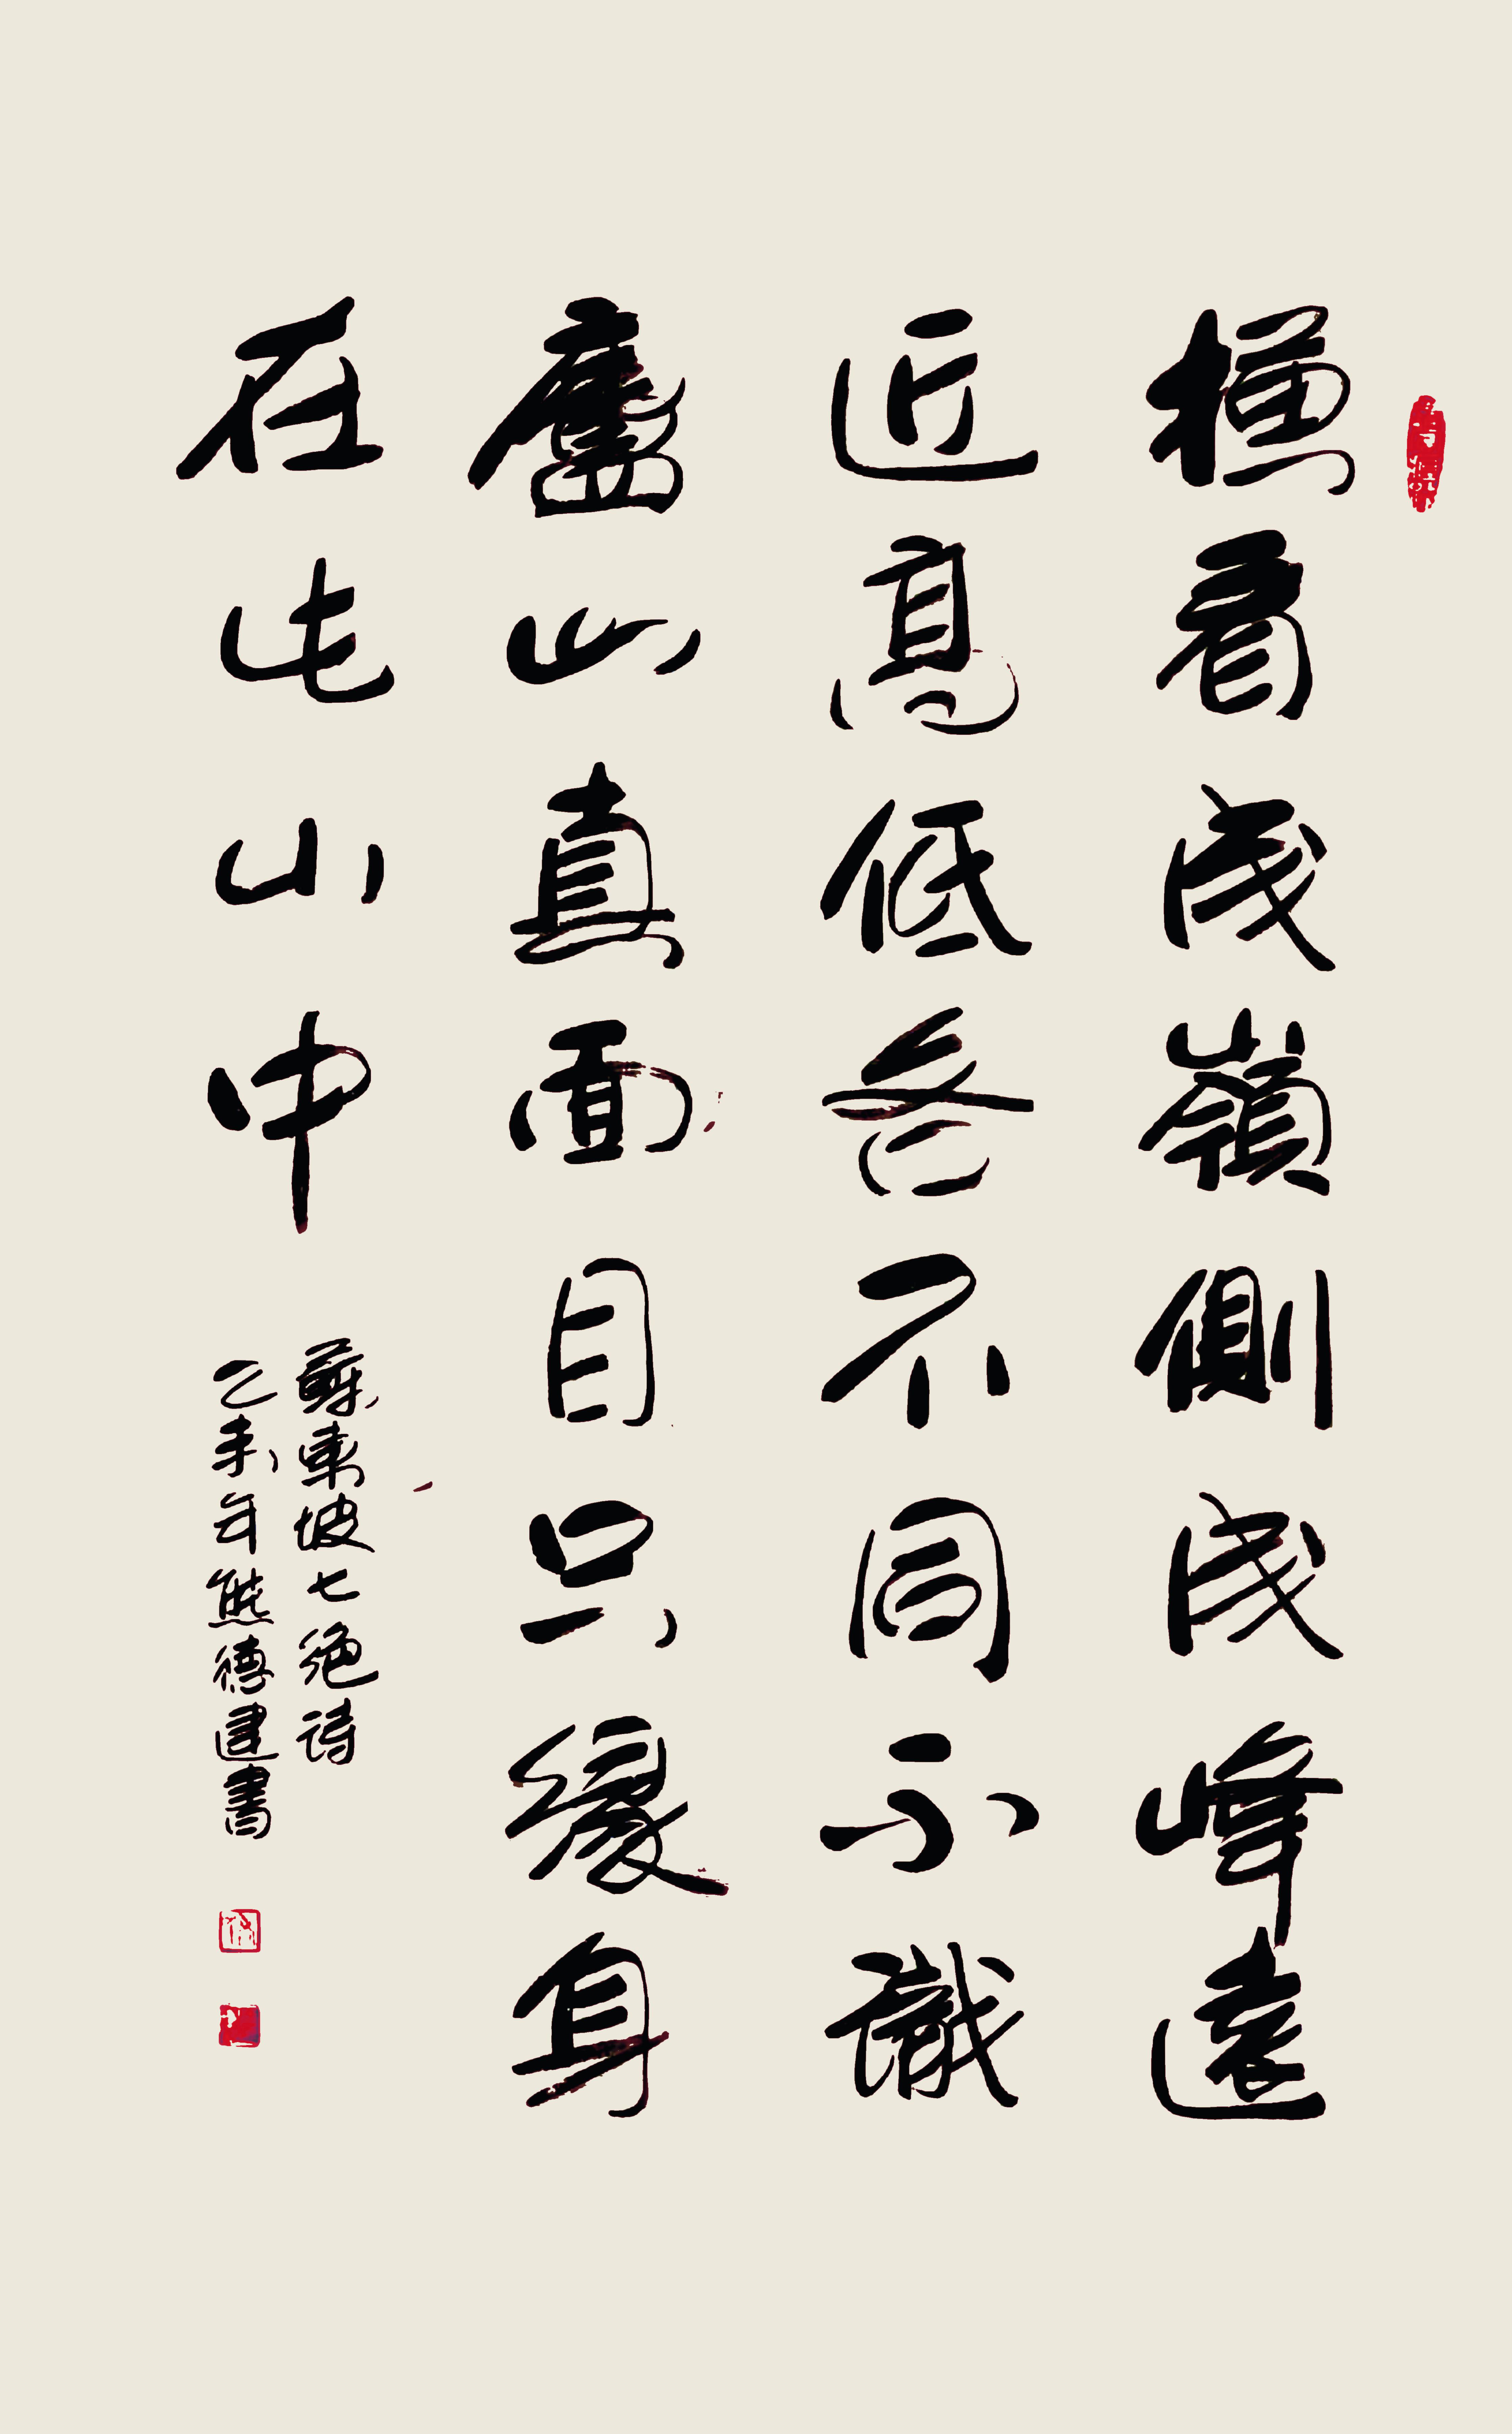 橫看成嶺側成峰遠
近高低各不同不識
廬山真面目只緣身
在此山中
蘇東坡七絕詩
乙未年熊德建書